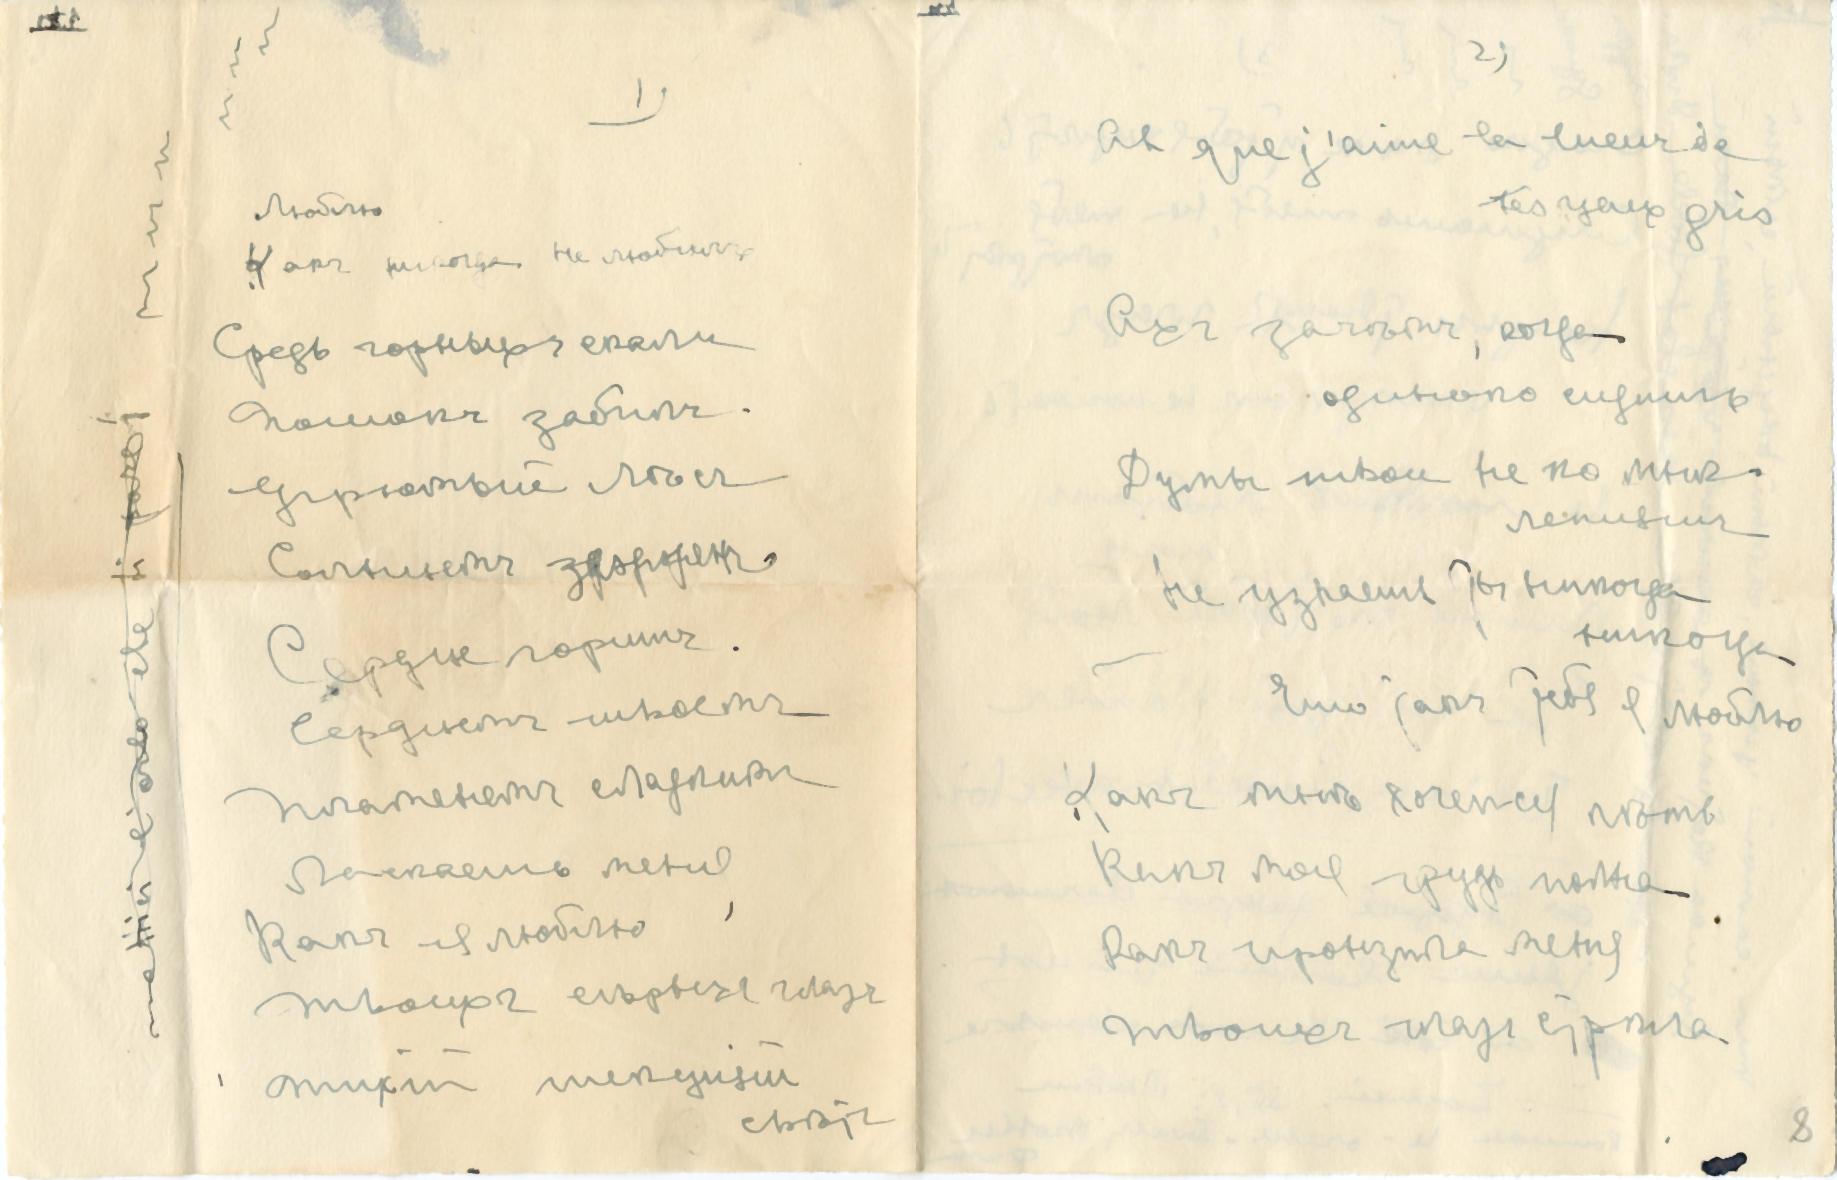 1)
Люблю
Какъ никогда не любилъ
Средь горныхъ скалъ
Потокъ забитъ.
Угрюмый лѣсъ
Солнцемъ
Сердце горитъ.
Сердцемъ твоемъ
Пламенемъ сладкимъ
Ласкаешь меня
Какъ я люблю,
Твоихъ сѣрыхъ глазъ
тихій текущій
свѣтъ
2)
Ah que j'aime la lueur de
tes yeux gris
Ахъ зачѣмъ, когда
одиноко сидишь
Думы твои не ко мнѣ.
Не узнаешь ты никогда
никогда
Что такъ тебя я люблю
Какъ мнѣ хочется пѣть
Какъ моя грудь полна
Какъ пронзила меня
Твоихъ глазъ стрѣла
8